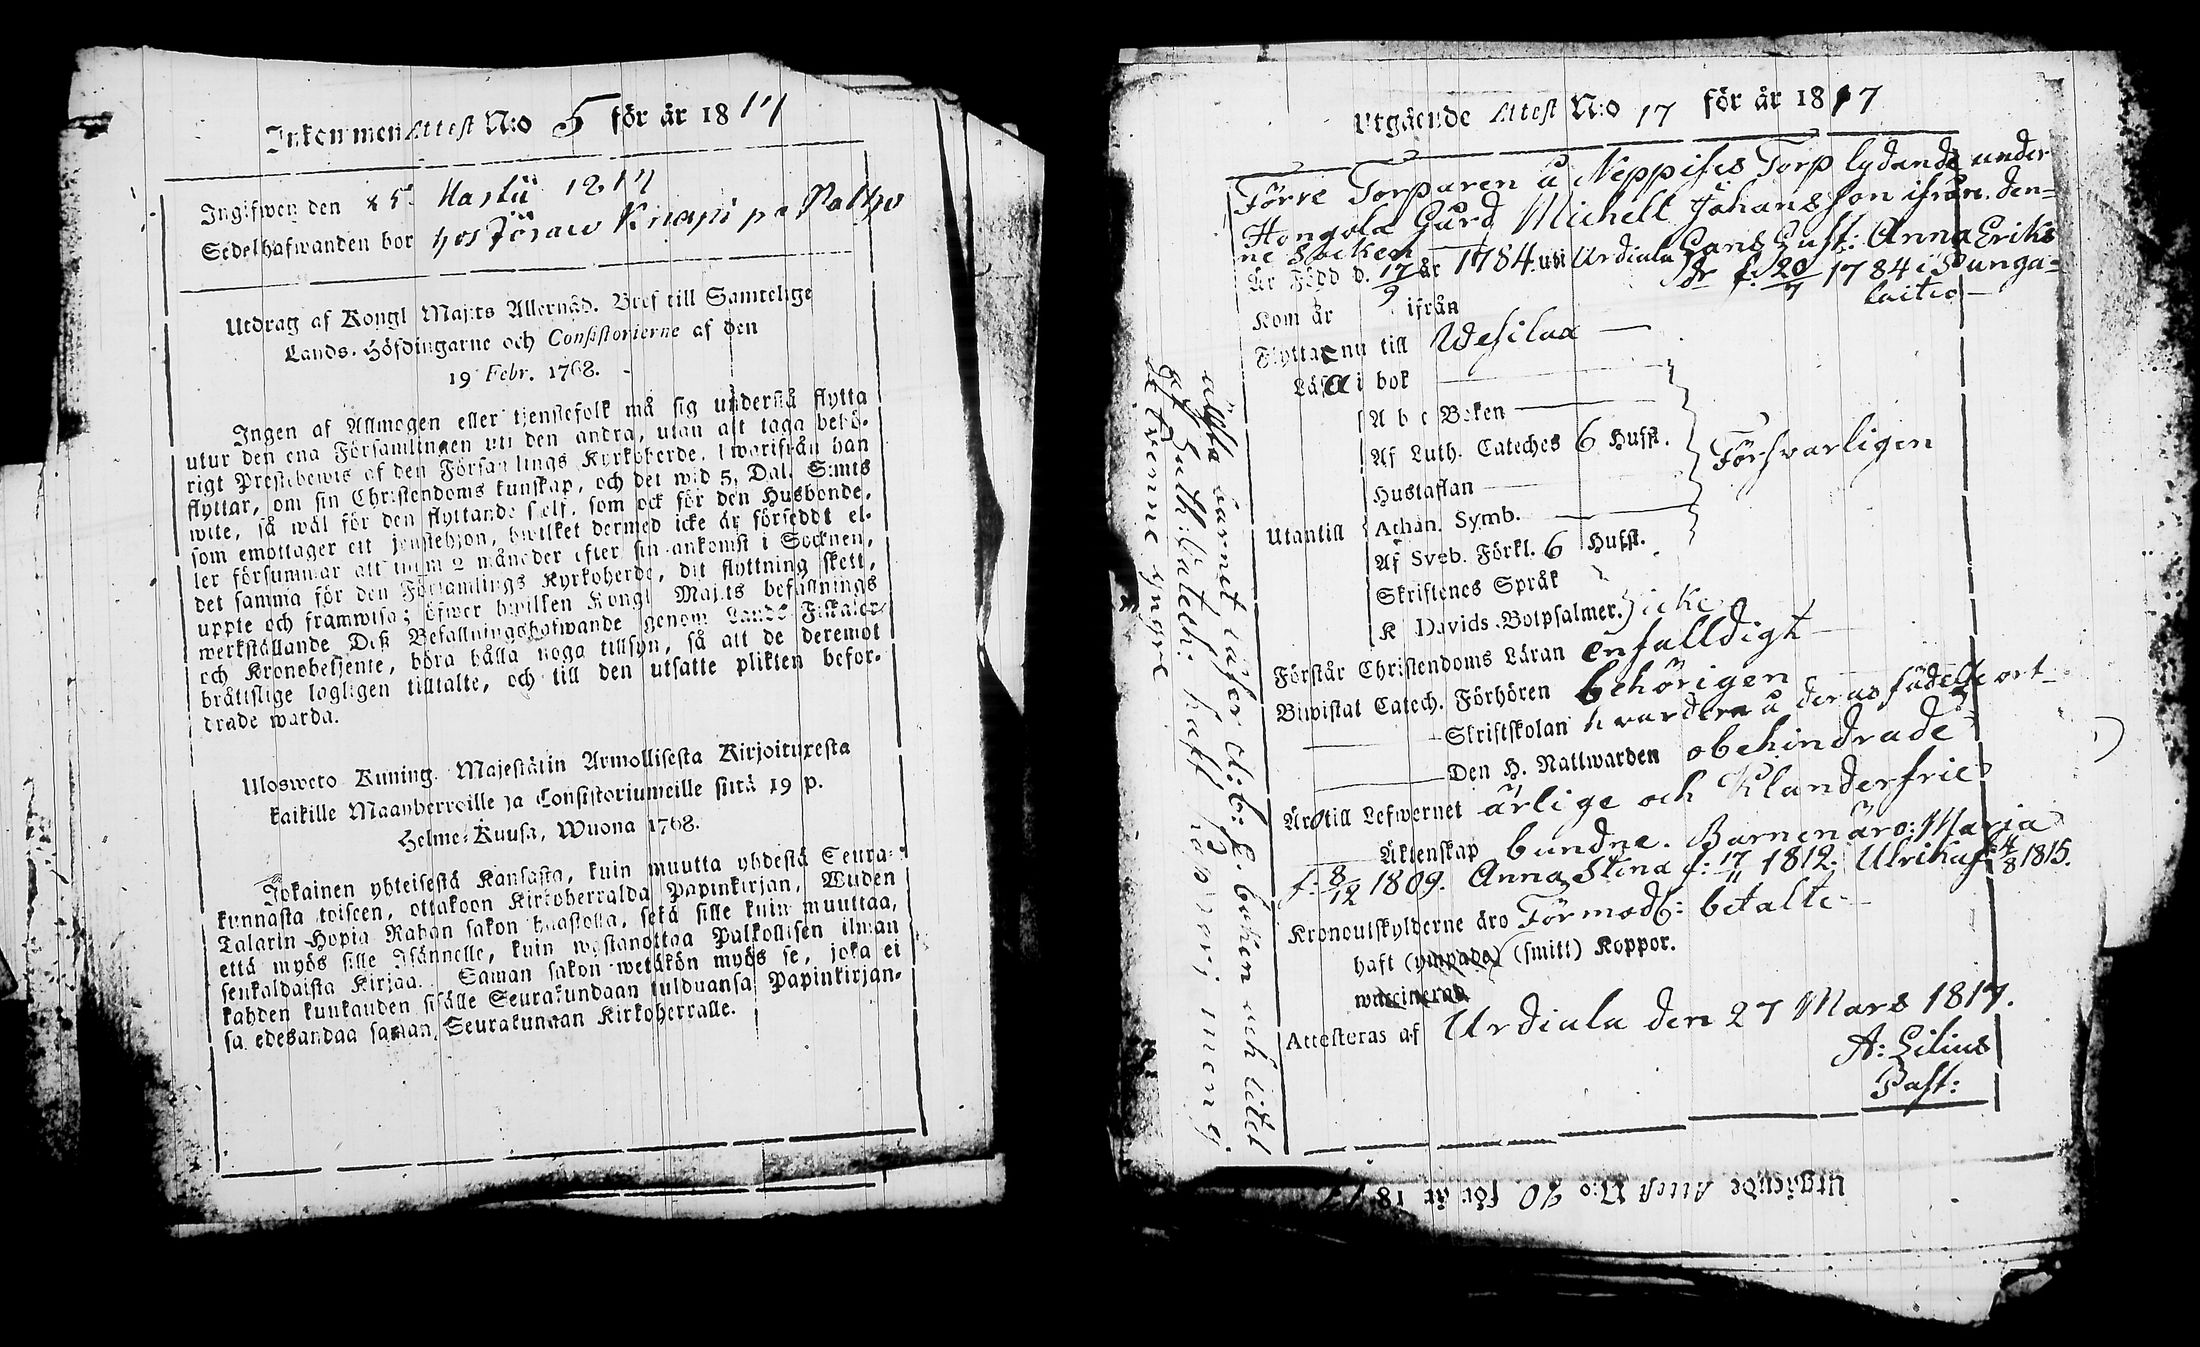 Inkommen Attest N:o 5 för år 1817
Ingifwen den 25 Martii 1817
Sedelhafwanden bor hos Jöran Knapi på Palho
Utdrag af Kongl Maj:ts Allernåd. Bref till Samtelige
Lands-Höfdingarne och Consistorierne af den
19 Febr. 1768.
Ingen af Allmogen eller tjenstefolk må sig understå flytta
utur den ena Församlingen uti den andra, utan att taga behö-
rigt Prestebewis af den Församlings Kyrkoherde, hwarifrån han
flyttar, om sin Christendoms kunskap, och det wid 5, Dal. S:mts
wite, så wäl för den flyttande sjelf, som ock för den Husbonde,
som emottager ett jenstehjon, hwilket dermed icke är förseddt el-
ler försummar att inom 2 månader efter sin ankomst i Socknen,
det samma för den Församlings Kyrkoherde, dit flyttning skett,
uppte och framwisa; öfwer hwilken Kongl Maj:ts befallnings
werkställande Deß Befallningshafwande genom Lands Fiskaler
och Kronobetjente, böra hålla noga tillsyn, så att de deremot
bråttslige lagligen tilltalte, och till den utsatte plikten befor-
drade warda.
Ulosweto Kuning. Majestätin Armollisesta Kirjoituxesta
kaikille Maanherroille ja Consistoriumeille siitä 19 p.
Helme-Kuusa, Wuona 1768.
Jokainen yhteisestä Kansasta, kuin muutta yhdestä Seura-
kunnasta toiseen, ottakoon Kirkoherralda Papinkirjan, Wuden
Talarin Hopia Rahan sakon haastolla, sekä sille kuin muuttaa,
että myös sille Isännelle, kuin wastanottaa Palkollisen ilman
senkaldaista Kirjaa. Saman sakon wetäkön myös se, joka ei
kahden kuukauden sisälle Seurakundaan tulduansa Papinkirjan-
sa edesandaa saman Seurakunnan Kirkoherralle.
Utgående Attest N:o 17 för år 1817
Förre Torparen å Neppises Torp lydande under
Hongola Gård Michell Johansson ifrån den-
ne Socken
Är Född d. 17/9 år 1784 uti Urdiala Hans Hust: Anna Eriks
Dr f: 20/7 1784 i Punga-
laitio
Kom år ifrån
Flytta nu till Wesilax
Läsa i bok
A b c Boken
Af Luth. Cateches 6 Hufst.
Hustaflan
Utantill Athan. Symb. Försvarligen
Af Sveb. Förkl. 6 Hufst.
Skriftenes Språk
K Davids Botpsalmer. Icke
Förstår Christendoms Läran enfalldigt
Biwistat Catech. Förhören behörigen
Skriftskolan hvardera å deras födelse ort
Den H. Nattwarden obehindrade
Äro till Lefwernet ärlige och Klanderfrie
Äktenskap bundne. Barnen äro: Maria
f: 8/12 1809. Anna Stina f: 17/11 1812. Ulrika f: 4/8 1815.
Kronoutskylderne äro Förmodl: betalte
haft (ympade) (smitt) Koppor.
waccinerad
Attesteras af Urdiala den 27 Mars 1817.
A: Lilius
Past:
äldsta barnet läser A:b:c: boken och litet
af Luth: Catech: haft koppor; men
de tvenne yngre
Utgående Attest N:o 20 för år 1817